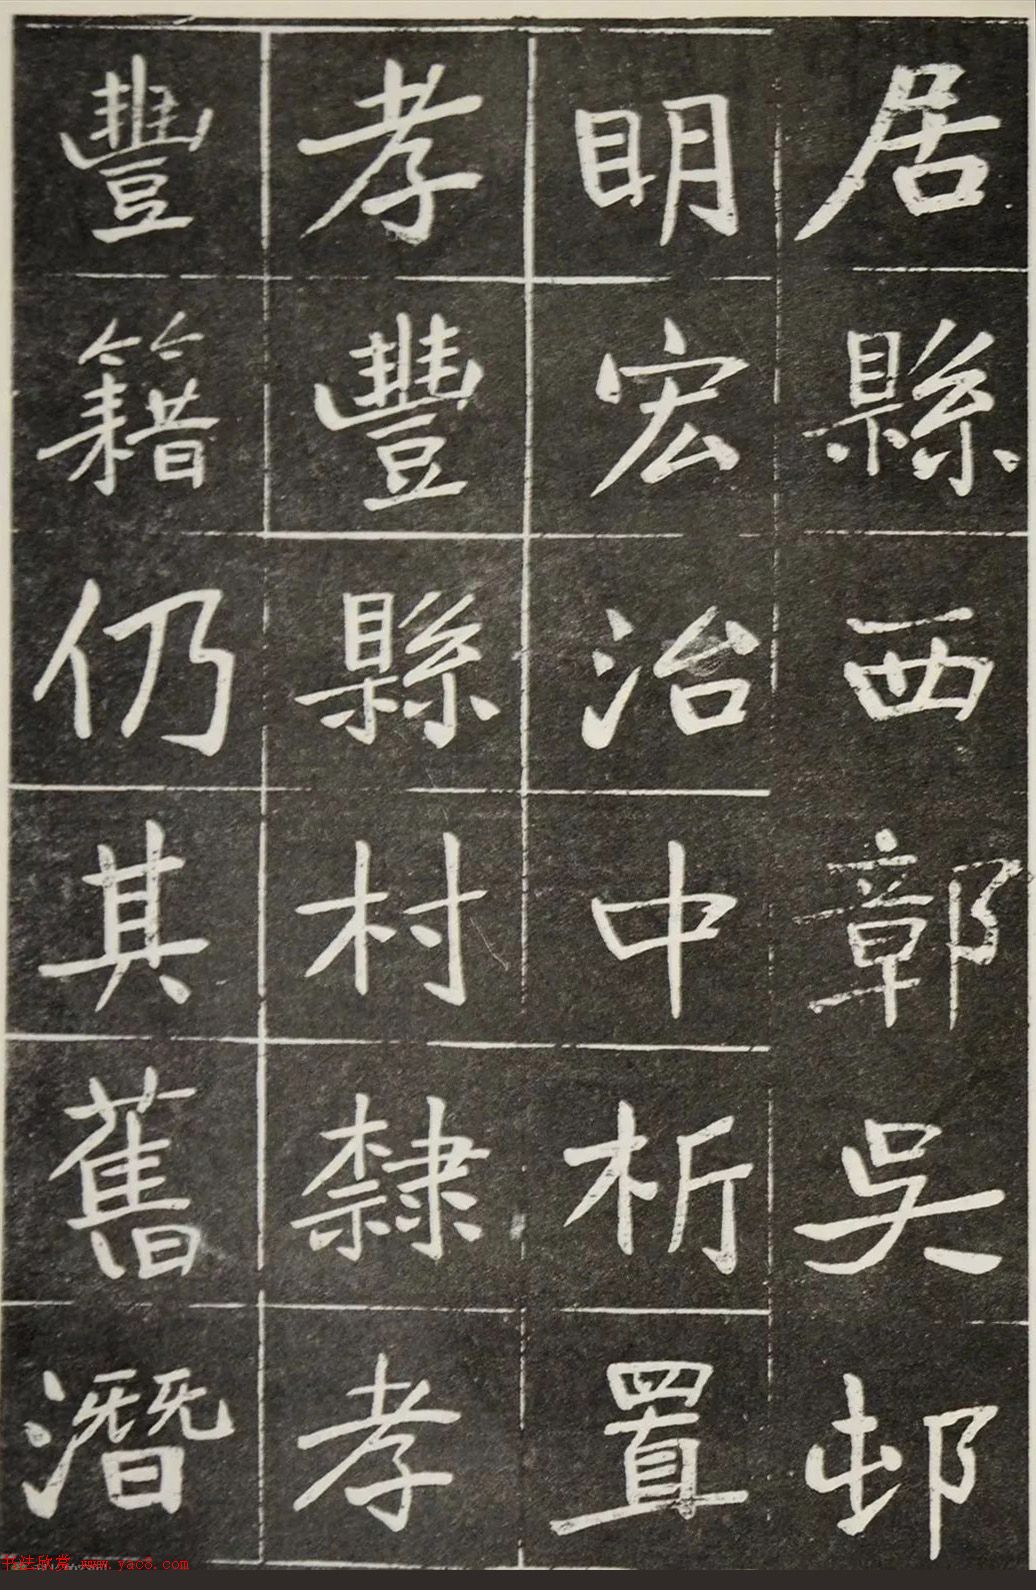 居縣西鄣吳邨
明宏治中析置
孝豐縣村隸孝
豐籍仍其舊潛
书法欣赏 www.yac8.com